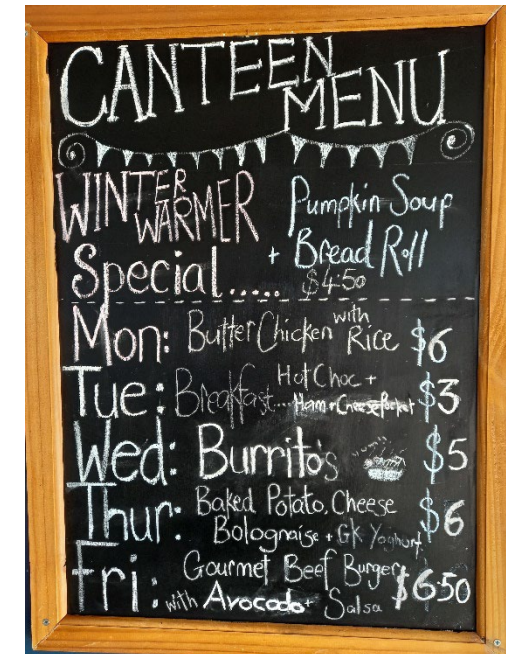 CANTEEN
MENU
WINTER
WARMER
Special.....
Pumpkin Soup
+ Bread Roll
$4.50
Mon: Butter Chicken with Rice $6
Tue: Breakfast... Hot Choc +
Ham + Cheese Pocket $3
Wed: Burrito's $5
Thur: Baked Potato, Cheese
Bolognaise + GK Yoghurt $6
Fri: Gourmet Beef Burger
with Avocado + Salsa $6.50